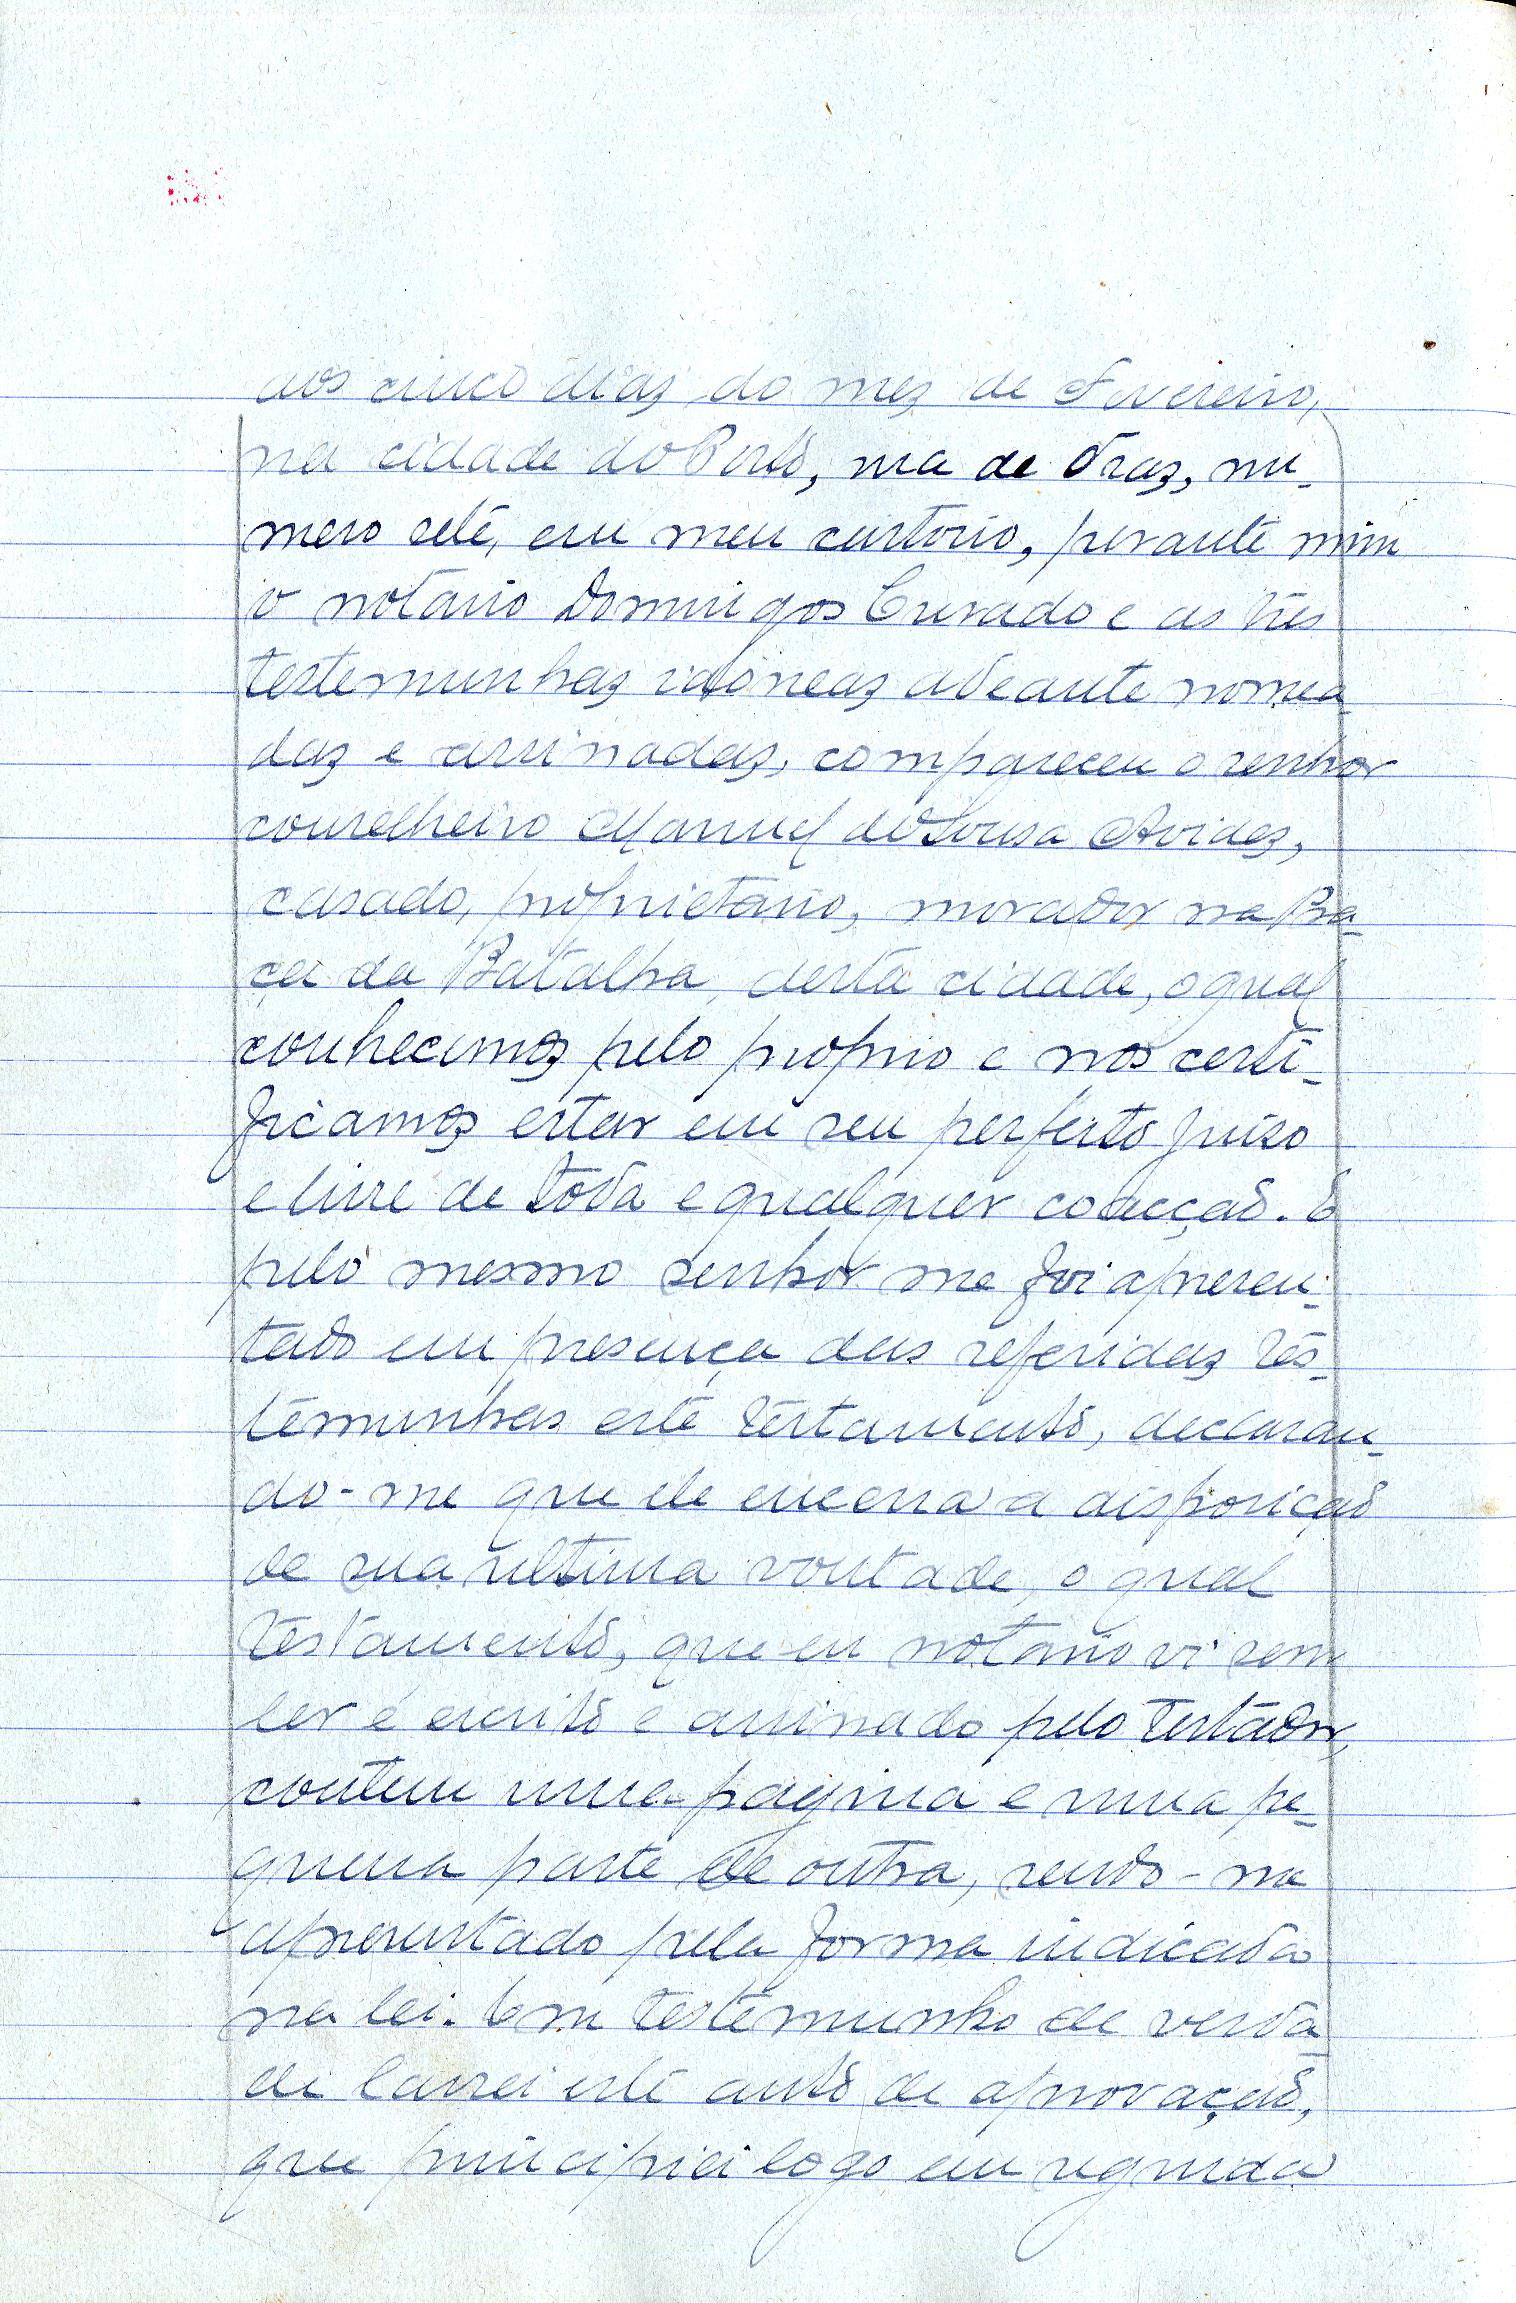 aos cinco dias do mez de Fevereiro,
na cidade do Porto, rua de Traz, nu-
mero sete, em meu cartorio, perante mim
o notario Domingos Curado e as tres
testemunhas idoneas adeante nomea-
das e assinadas, compareceu o senhor
conselheiro Manuel de Sousa Avides,
casado, proprietario, morador na Pra-
ça da Batalha, desta cidade, o qual
conhecemos pelo proprio e nos certi-
ficamos estar em seu perfeito juizo
e livre de toda e qualquer coacção. E
pelo mesmo senhor me foi apresen-
tado em presença das referidas tes-
temunhas este testamento, declaran-
do-me que ele encerra a disposição
de sua ultima vontade, o qual
testamento, que eu notario vi sem
ler é escrito e assinado pelo testador,
contem uma pagina e uma pe-
quena parte de outra, sendo-me
apresentado pela forma indicada
na lei. Em testemunho de verda
de lavrei este auto de aprovação,
que principiei logo em seguida